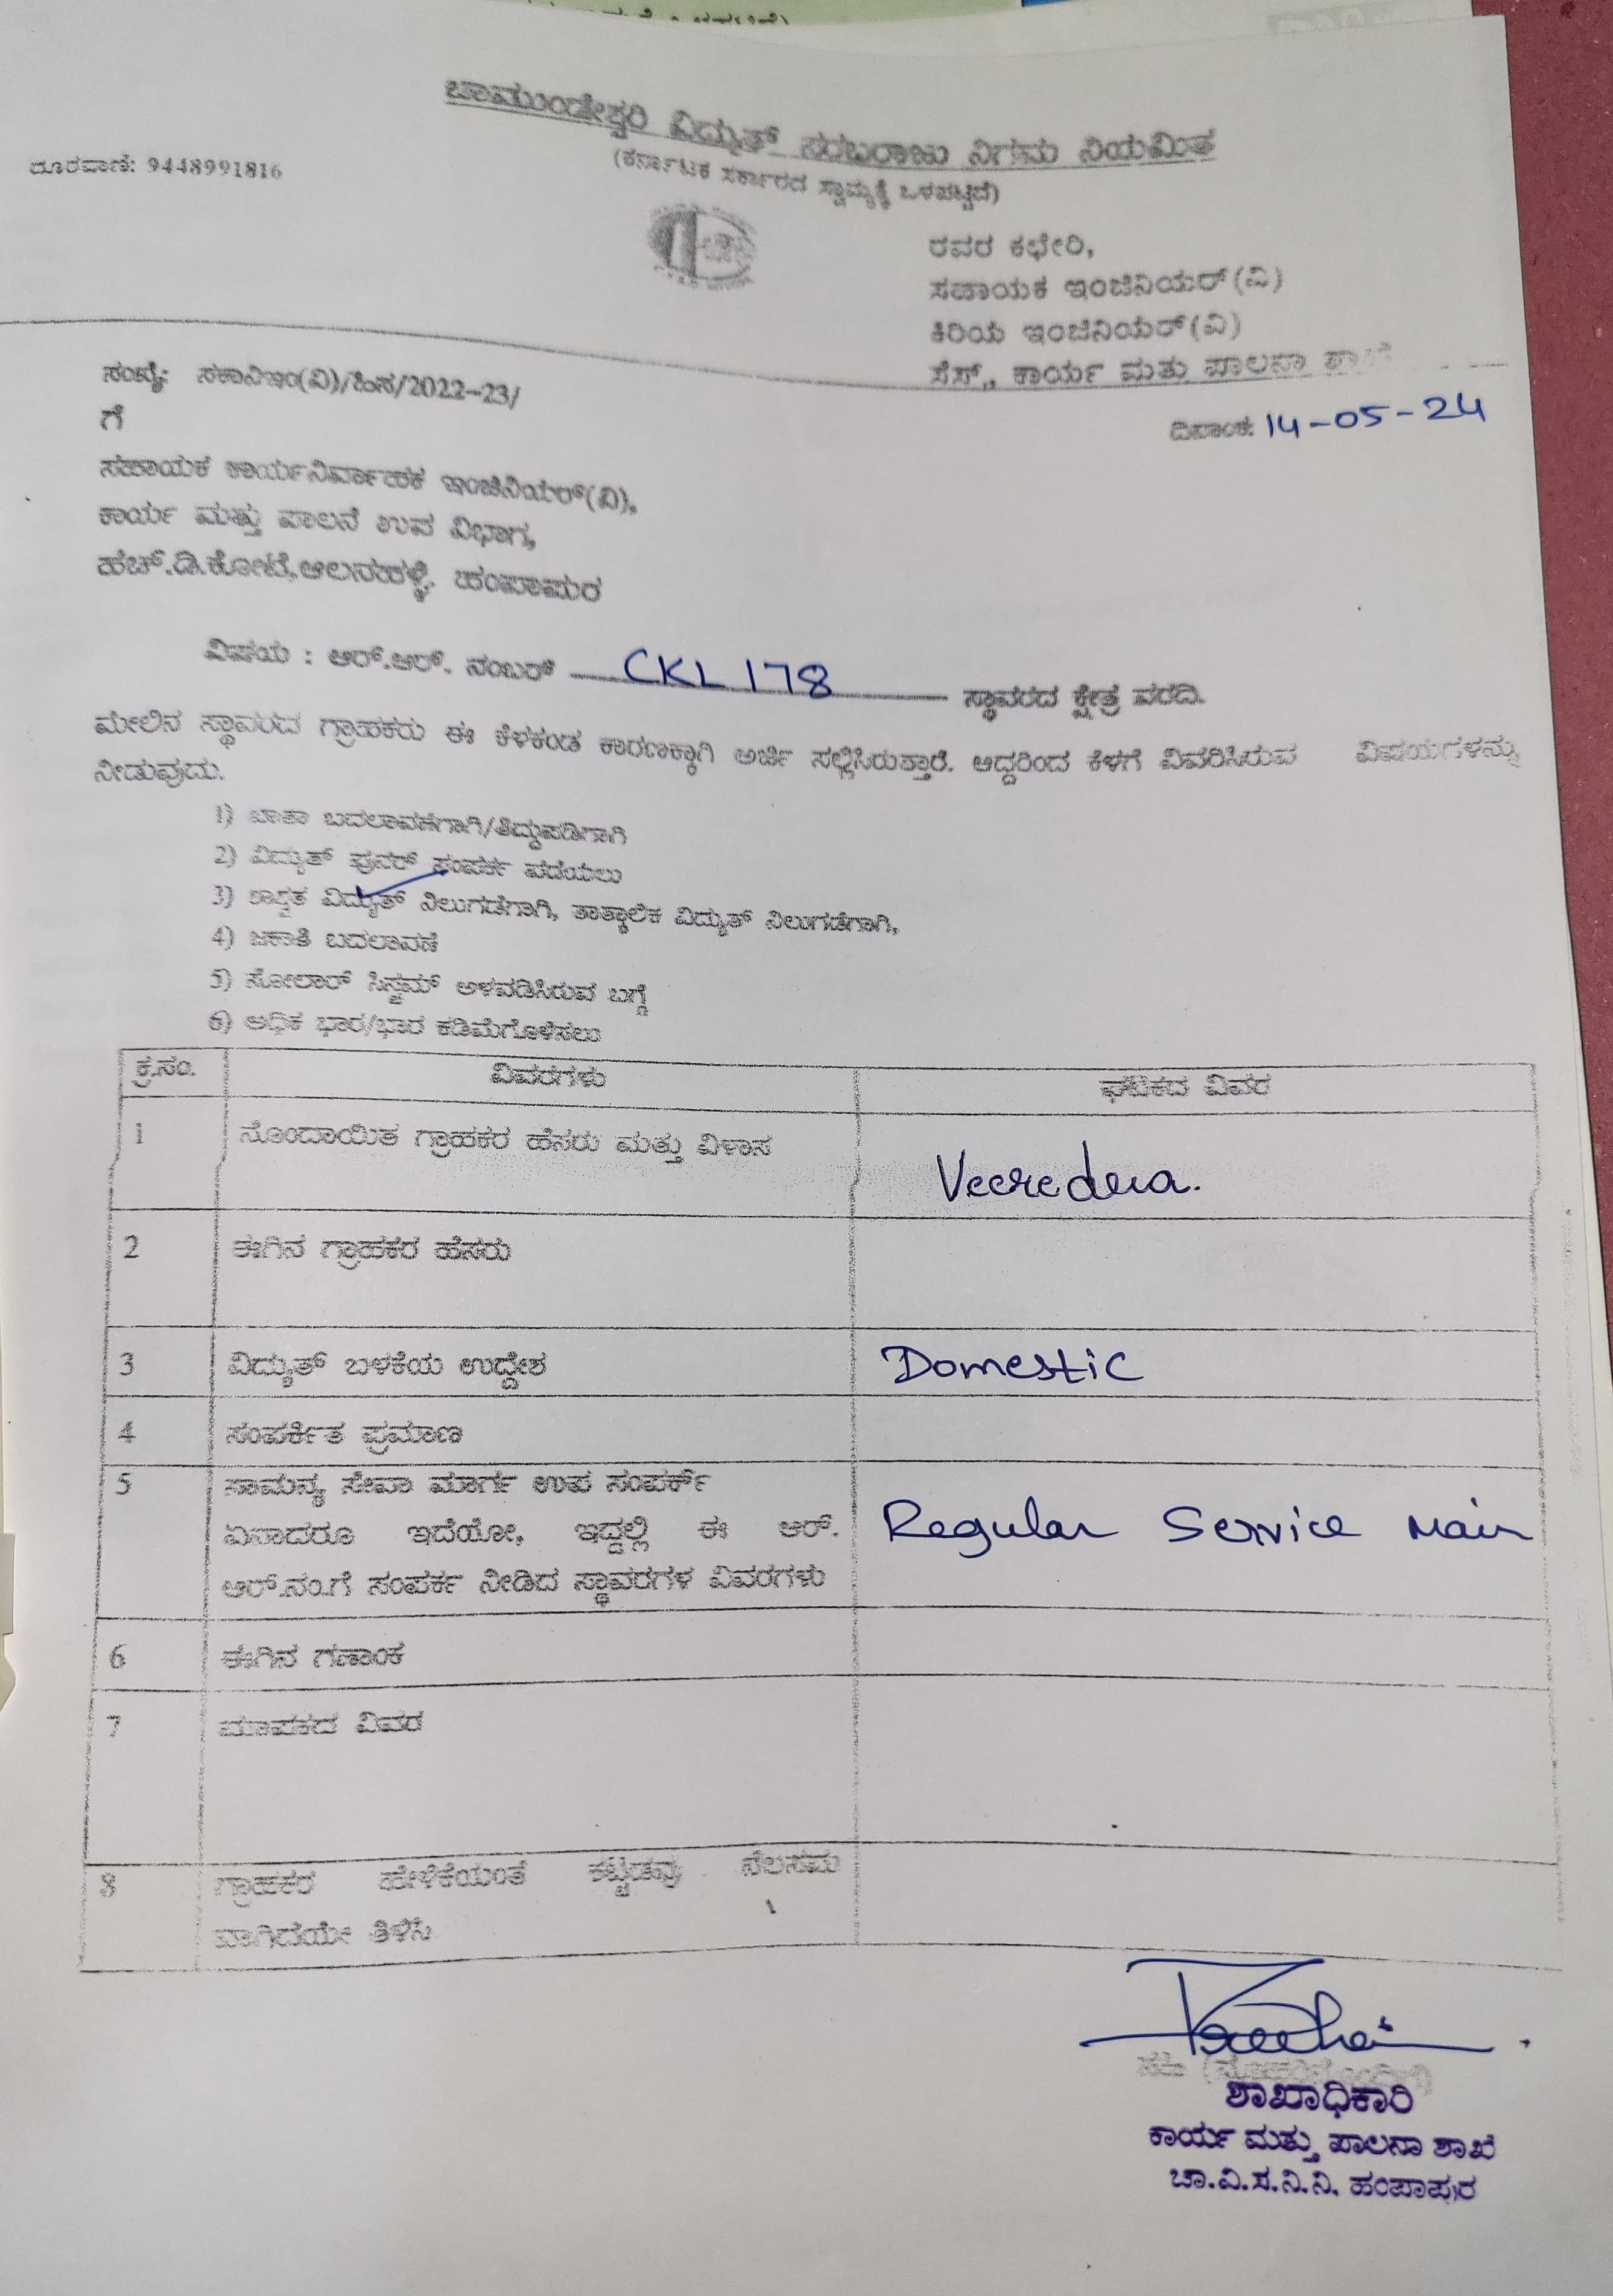 ಚಾಮುಂಡೇಶ್ವರಿ ವಿದ್ಯುತ್ ಸರಬರಾಜು ನಿಗಮ ನಿಯಮಿತ
(ಕರ್ನಾಟಕ ಸರ್ಕಾರದ ಸ್ವಾಮ್ಯಕ್ಕೆ ಒಳಪಟ್ಟಿದೆ)
ದೂರವಾಣಿ: 9448991816
ರವರ ಕಛೇರಿ,
ಸಹಾಯಕ ಇಂಜಿನಿಯರ್(ವಿ)
ಕಿರಿಯ ಇಂಜಿನಿಯರ್(ವಿ)
ಸೆಸ್, ಕಾರ್ಯ ಮತ್ತು ಪಾಲನಾ ಶಾಖೆ
ಸಂಖ್ಯೆ: ಸಕಾನಿಇಂ(ವಿ)/ಹಿಂಸ/2022-23/
ಗೆ
ದಿನಾಂಕ: 14-05-24
ಸಹಾಯಕ ಕಾರ್ಯನಿರ್ವಾಹಕ ಇಂಜಿನಿಯರ್(ವಿ),
ಕಾರ್ಯ ಮತ್ತು ಪಾಲನೆ ಉಪ ವಿಭಾಗ,
ಹೆಚ್.ಡಿ.ಕೋಟೆ, ಆಲನಹಳ್ಳಿ. ಹಂಪಾಪುರ
ವಿಷಯ : ಆರ್.ಆರ್. ನಂಬರ್ CKL 178 ಸ್ಥಾವರದ ಕ್ಷೇತ್ರ ವರದಿ.
ಮೇಲಿನ ಸ್ಥಾವರದ ಗ್ರಾಹಕರು ಈ ಕೆಳಕಂಡ ಕಾರಣಕ್ಕಾಗಿ ಅರ್ಜಿ ಸಲ್ಲಿಸಿರುತ್ತಾರೆ. ಆದ್ದರಿಂದ ಕೆಳಗೆ ವಿವರಿಸಿರುವ ವಿಷಯಗಳನ್ನು
ನೀಡುವುದು.
1) ಖಾತಾ ಬದಲಾವಣೆಗಾಗಿ/ತಿದ್ದುಪಡಿಗಾಗಿ
2) ವಿದ್ಯುತ್ ಪುನರ್ ಸಂಪರ್ಕ ಪಡೆಯಲು
3) ಶಾಶ್ವತ ವಿದ್ಯುತ್ ನಿಲುಗಡೆಗಾಗಿ, ತಾತ್ಕಾಲಿಕ ವಿದ್ಯುತ್ ನಿಲುಗಡೆಗಾಗಿ,
4) ಜಕಾತಿ ಬದಲಾವಣೆ
5) ಸೋಲಾರ್ ಸಿಸ್ಟಮ್ ಅಳವಡಿಸಿರುವ ಬಗ್ಗೆ
6) ಅಧಿಕ ಭಾರ/ಭಾರ ಕಡಿಮೆಗೊಳಿಸಲು
ಕ್ರ.ಸಂ. ವಿವರಗಳು ಘಟಕದ ವಿವರ
1 ನೊಂದಾಯಿತ ಗ್ರಾಹಕರ ಹೆಸರು ಮತ್ತು ವಿಳಾಸ
2 ಈಗಿನ ಗ್ರಾಹಕರ ಹೆಸರು
3 ವಿದ್ಯುತ್ ಬಳಕೆಯ ಉದ್ದೇಶ Domestic
4 ಸಂಪರ್ಕಿತ ಪ್ರಮಾಣ
5 ಸಾಮನ್ಯ ಸೇವಾ ಮಾರ್ಗ ಉಪ ಸಂಪರ್ಕ್
ಏನಾದರೂ ಇದೆಯೋ, ಇದ್ದಲ್ಲಿ ಈ ಆರ್. Regular Service Main
ಆರ್.ನಂ.ಗೆ ಸಂಪರ್ಕ ನೀಡಿದ ಸ್ಥಾವರಗಳ ವಿವರಗಳು
6 ಈಗಿನ ಗಣಾಂಕ
7 ಮಾಪಕದ ವಿವರ
8 ಗ್ರಾಹಕರ ಹೇಳಿಕೆಯಂತೆ ಕಟ್ಟಡವು ನೆಲಸಮ
ವಾಗಿದೆಯೇ ತಿಳಿಸಿ
ಶಾಖಾಧಿಕಾರಿ
ಕಾರ್ಯ ಮತ್ತು ಪಾಲನಾ ಶಾಖೆ
ಚಾ.ವಿ.ಸ.ನಿ.ನಿ. ಹಂಪಾಪುರ